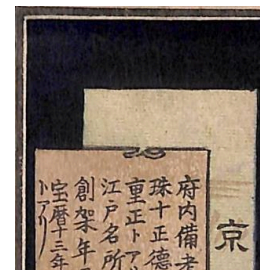 京
府内備考
珠十正徳
重正トア
江戸名所
創架年
宝暦十三年
トアリ